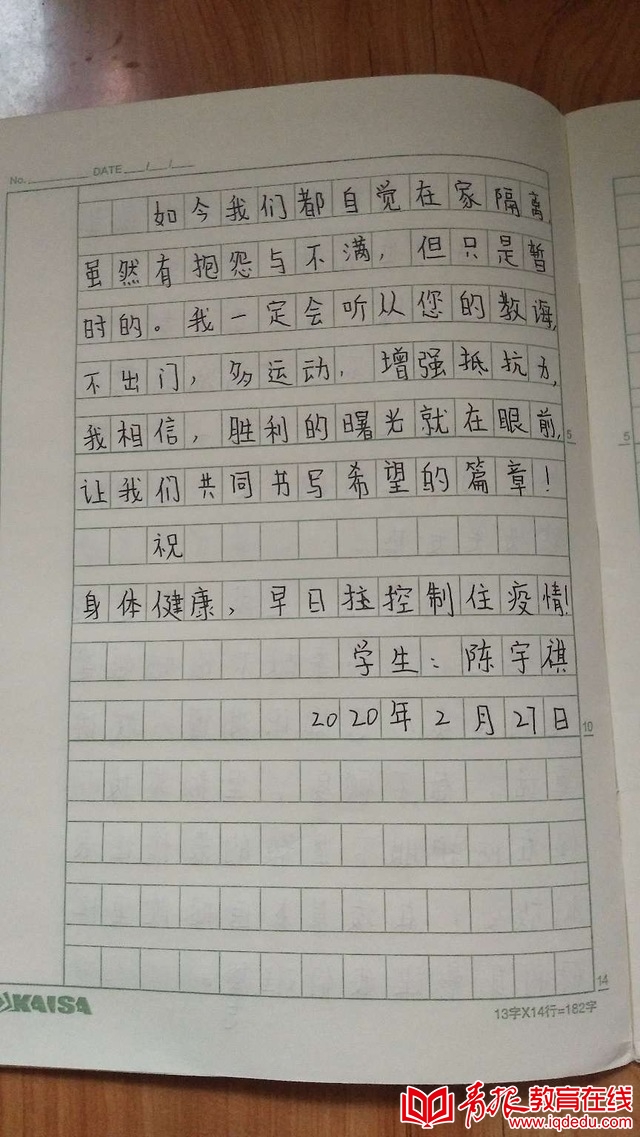 No. DATE / /
如今我们都自觉在家隔离,
虽然有抱怨与不满，但只是暂
时的。我一定会听从您的教诲,
不出门，多运动，增强抵抗力,
我相信，胜利的曙光就在眼前,
5
5
让我们共同书写希望的篇章！
祝
身体健康，早日控制住疫情!
学生：陈宇祺
2020年2月27日
10
14
KAISA
13字X14行=182字
青报教育在线
www.iqdedu.com